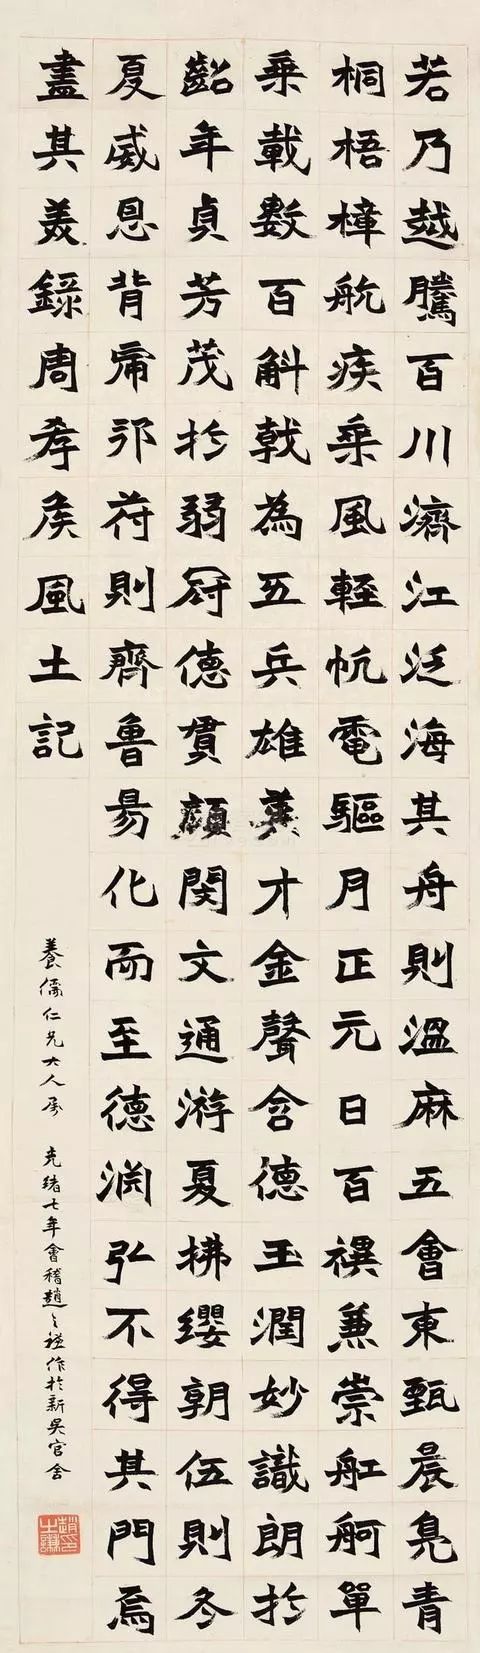 若乃越騰百川濟江泛海其舟則溫麻五會東甄晨鳧青
桐梧樟航疾乘風輕帆電驅月正元日百禩兼崇舡舸單
乘載數百斛戟為五兵雄英才金聲含德玉潤妙識朗於
齠年貞芳茂於弱冠德貫顏閔文通游夏拂纓朝伍則冬
夏威恩背帝邘苻則齊魯易化而至德渕弘不得其門焉
盡其美錄周孝矦風土記
養儒仁兄大人屬 光緒七年會稽趙之謙作於新吳官舍
趙之謙印